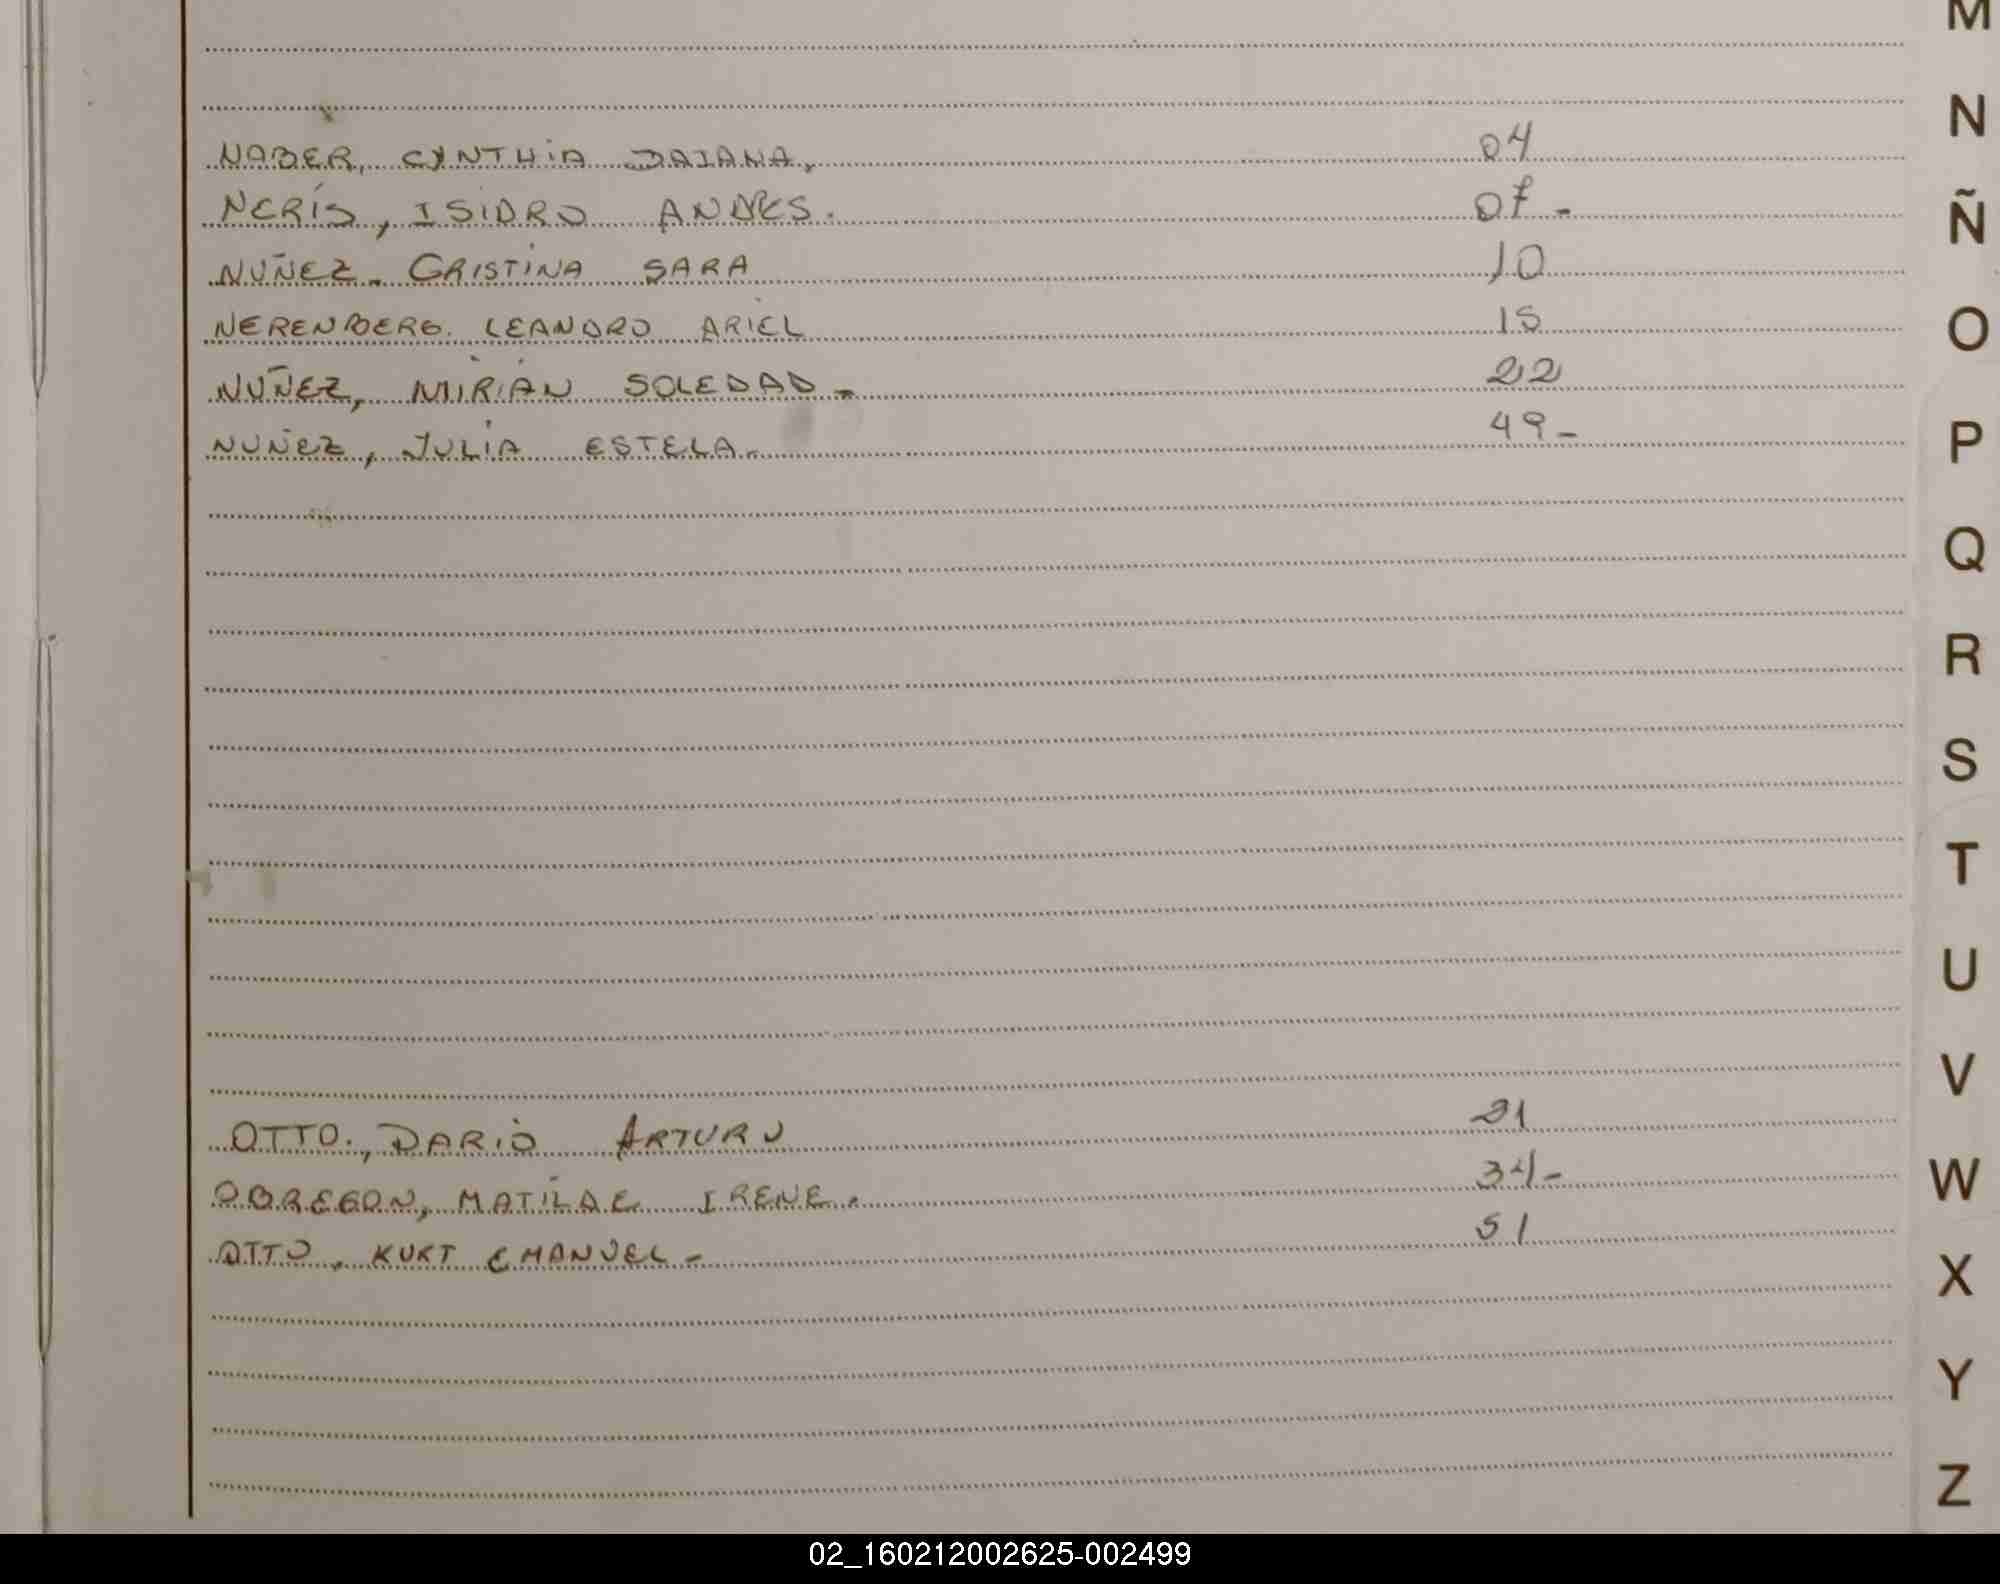 NABER, CYNTHIA DAIANA, 04
NERIS, ISIDRO ANDRES. 07-
NUÑEZ- CRISTINA SARA 10
NERENBERG. LEANDRO ARIEL 15
NUÑEZ, MIRIAN SOLEDAD- 22
NUÑEZ, JULIA ESTELA- 49-
OTTO., DARIO ARTURO 21
OBREGON, MATILDE IRENE. 34-
OTTO, KURT EMANUEL- 51
M
N
Ñ
O
P
Q
R
S
T
U
V
W
X
Y
Z
02_160212002625-002499